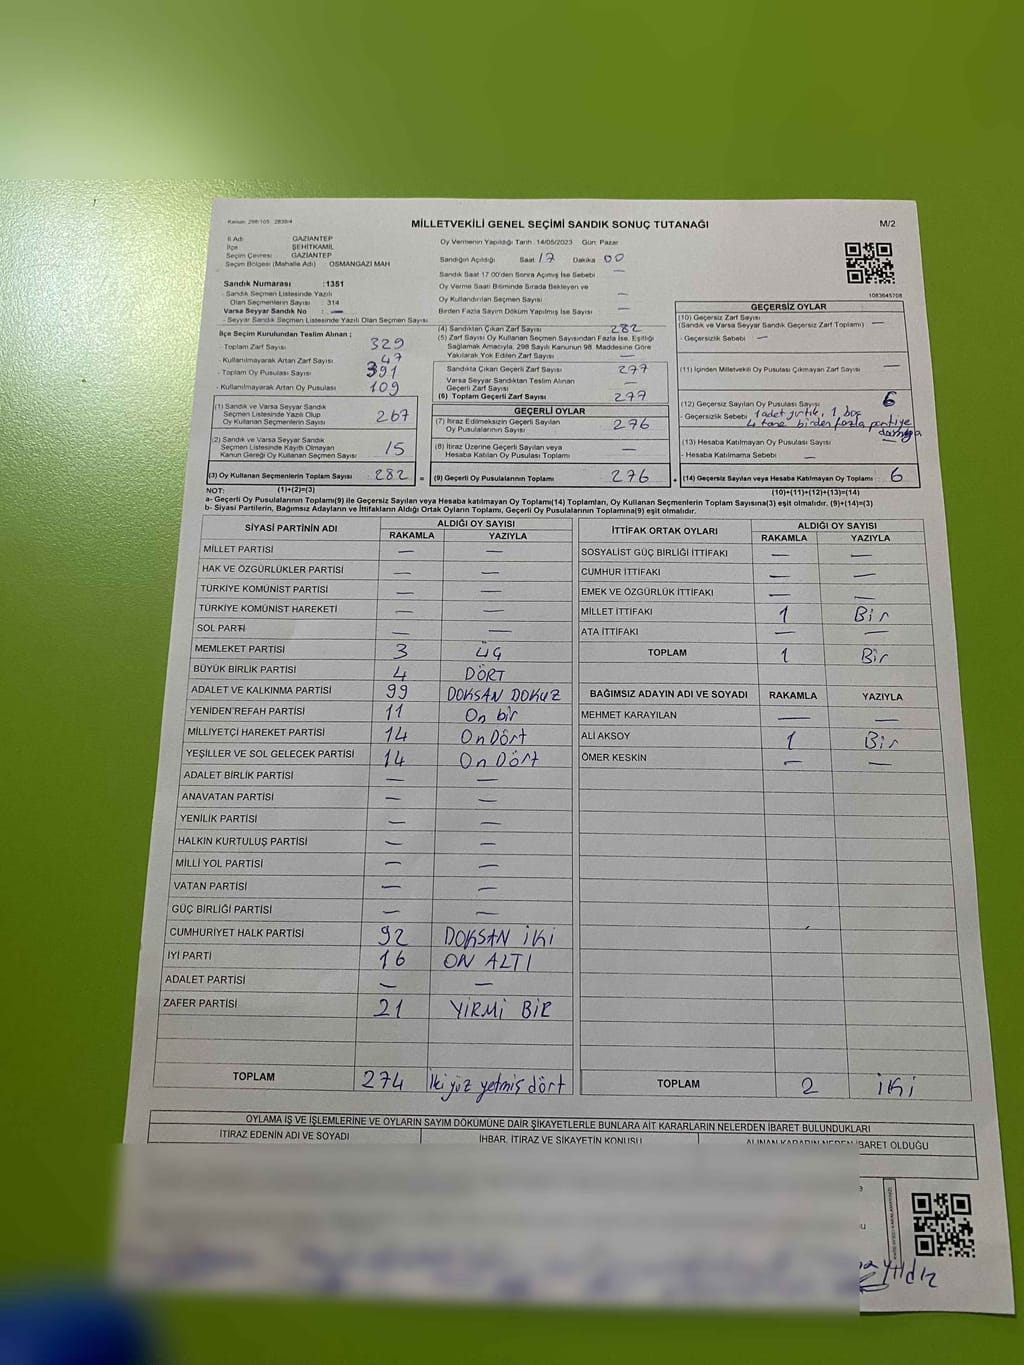 Kanun: 298/105 2839/4
MİLLETVEKİLİ GENEL SEÇİMİ SANDIK SONUÇ TUTANAĞI
M/2
İl Adı GAZİANTEP
İlçe ŞEHİTKAMİL
Seçim Çevresi GAZİANTEP
Seçim Bölgesi (Mahalle Adı) OSMANGAZI MAH
Sandık Numarası : 1351
- Sandık Seçmen Listesinde Yazılı
Olan Seçmenlerin Sayısı : 314
Varsa Seyyar Sandık No : —
- Seyyar Sandık Seçmen Listesinde Yazılı Olan Seçmen Sayısı
Oy Vermenin Yapıldığı Tarih : 14/05/2023 Gün: Pazar
Sandığın Açıldığı Saat 17 Dakika 00
Sandık Saat 17:00'den Sonra Açılmış İse Sebebi —
Oy Verme Saati Bitiminde Sırada Bekleyen ve
Oy Kullandırılan Seçmen Sayısı —
Birden Fazla Sayım Döküm Yapılmış İse Sayısı —
1083645708
İlçe Seçim Kurulundan Teslim Alınan ;
- Toplam Zarf Sayısı 329
- Kullanılmayarak Artan Zarf Sayısı 47
- Toplam Oy Pusulası Sayısı 391
- Kullanılmayarak Artan Oy Pusulası 109
(1) Sandık ve Varsa Seyyar Sandık
Seçmen Listesinde Yazılı Olup
Oy Kullanan Seçmenlerin Sayısı 267
(2) Sandık ve Varsa Seyyar Sandık
Seçmen Listesinde Kayıtlı Olmayan
Kanun Gereği Oy Kullanan Seçmen Sayısı 15
(3) Oy Kullanan Seçmenlerin Toplam Sayısı 282 =
(4) Sandıktan Çıkan Zarf Sayısı 282
(5) Zarf Sayısı Oy Kullanan Seçmen Sayısından Fazla İse, Eşitliği
Sağlamak Amacıyla, 298 Sayılı Kanunun 98. Maddesine Göre
Yakılarak Yok Edilen Zarf Sayısı —
Sandıkta Çıkan Geçerli Zarf Sayısı 277
Varsa Seyyar Sandıktan Teslim Alınan
Geçerli Zarf Sayısı —
(6) Toplam Geçerli Zarf Sayısı 277
GEÇERLİ OYLAR
(7) İtiraz Edilmeksizin Geçerli Sayılan
Oy Pusulalarının Sayısı 276
(8) İtiraz Üzerine Geçerli Sayılan veya
Hesaba Katılan Oy Pusulası Toplamı —
(9) Geçerli Oy Pusulalarının Toplamı 276 +
GEÇERSİZ OYLAR
(10) Geçersiz Zarf Sayısı
(Sandık ve Varsa Seyyar Sandık Geçersiz Zarf Toplamı) —
- Geçersizlik Sebebi —
(11) İçinden Milletvekili Oy Pusulası Çıkmayan Zarf Sayısı —
(12) Geçersiz Sayılan Oy Pusulası Sayısı 6
- Geçersizlik Sebebi 1 adet yırtık, 1 boş
4 tane birden fazla partiye
damga
(13) Hesaba Katılmayan Oy Pusulası Sayısı —
- Hesaba Katılmama Sebebi —
(14) Geçersiz Sayılan veya Hesaba Katılmayan Oy Toplamı : 6
NOT: (1)+(2)=(3) (10)+(11)+(12)+(13)=(14)
a- Geçerli Oy Pusulalarının Toplamı(9) ile Geçersiz Sayılan veya Hesaba katılmayan Oy Toplamı(14) Toplamları, Oy Kullanan Seçmenlerin Toplam Sayısına(3) eşit olmalıdır, (9)+(14)=(3)
b- Siyasi Partilerin, Bağımsız Adayların ve İttifakların Aldığı Ortak Oyların Toplamı, Geçerli Oy Pusulalarının Toplamına(9) eşit olmalıdır.
SİYASİ PARTİNİN ADI ALDIĞI OY SAYISI
RAKAMLA YAZIYLA
MİLLET PARTİSİ — —
HAK VE ÖZGÜRLÜKLER PARTİSİ — —
TÜRKİYE KOMÜNİST PARTİSİ — —
TÜRKİYE KOMÜNİST HAREKETİ — —
SOL PARTİ — —
MEMLEKET PARTİSİ 3 ÜÇ
BÜYÜK BİRLİK PARTİSİ 4 DÖRT
ADALET VE KALKINMA PARTİSİ 99 DOKSAN DOKUZ
YENİDEN REFAH PARTİSİ 11 On bir
MİLLİYETÇİ HAREKET PARTİSİ 14 On Dört
YEŞİLLER VE SOL GELECEK PARTİSİ 14 On Dört
ADALET BİRLİK PARTİSİ — —
ANAVATAN PARTİSİ — —
YENİLİK PARTİSİ — —
HALKIN KURTULUŞ PARTİSİ — —
MİLLİ YOL PARTİSİ — —
VATAN PARTİSİ — —
GÜÇ BİRLİĞİ PARTİSİ — —
CUMHURİYET HALK PARTİSİ 92 DOKSAN İKİ
İYİ PARTİ 16 ON ALTI
ADALET PARTİSİ — —
ZAFER PARTİSİ 21 YİRMİ BİR
TOPLAM 274 İki yüz yetmiş dört
İTTİFAK ORTAK OYLARI ALDIĞI OY SAYISI
RAKAMLA YAZIYLA
SOSYALİST GÜÇ BİRLİĞİ İTTİFAKI — —
CUMHUR İTTİFAKI — —
EMEK VE ÖZGÜRLÜK İTTİFAKI — —
MİLLET İTTİFAKI 1 Bir
ATA İTTİFAKI — —
TOPLAM 1 Bir
BAĞIMSIZ ADAYIN ADI VE SOYADI RAKAMLA YAZIYLA
MEHMET KARAYILAN — —
ALİ AKSOY 1 Bir
ÖMER KESKİN — —
TOPLAM 2 İKİ
OYLAMA İŞ VE İŞLEMLERİNE VE OYLARIN SAYIM DÖKÜMÜNE DAİR ŞİKAYETLERLE BUNLARA AİT KARARLARIN NELERDEN İBARET BULUNDUKLARI
İTİRAZ EDENİN ADI VE SOYADI İHBAR, İTİRAZ VE ŞİKAYETİN KONUSU ALINAN KARARIN NEDEN İBARET OLDUĞU